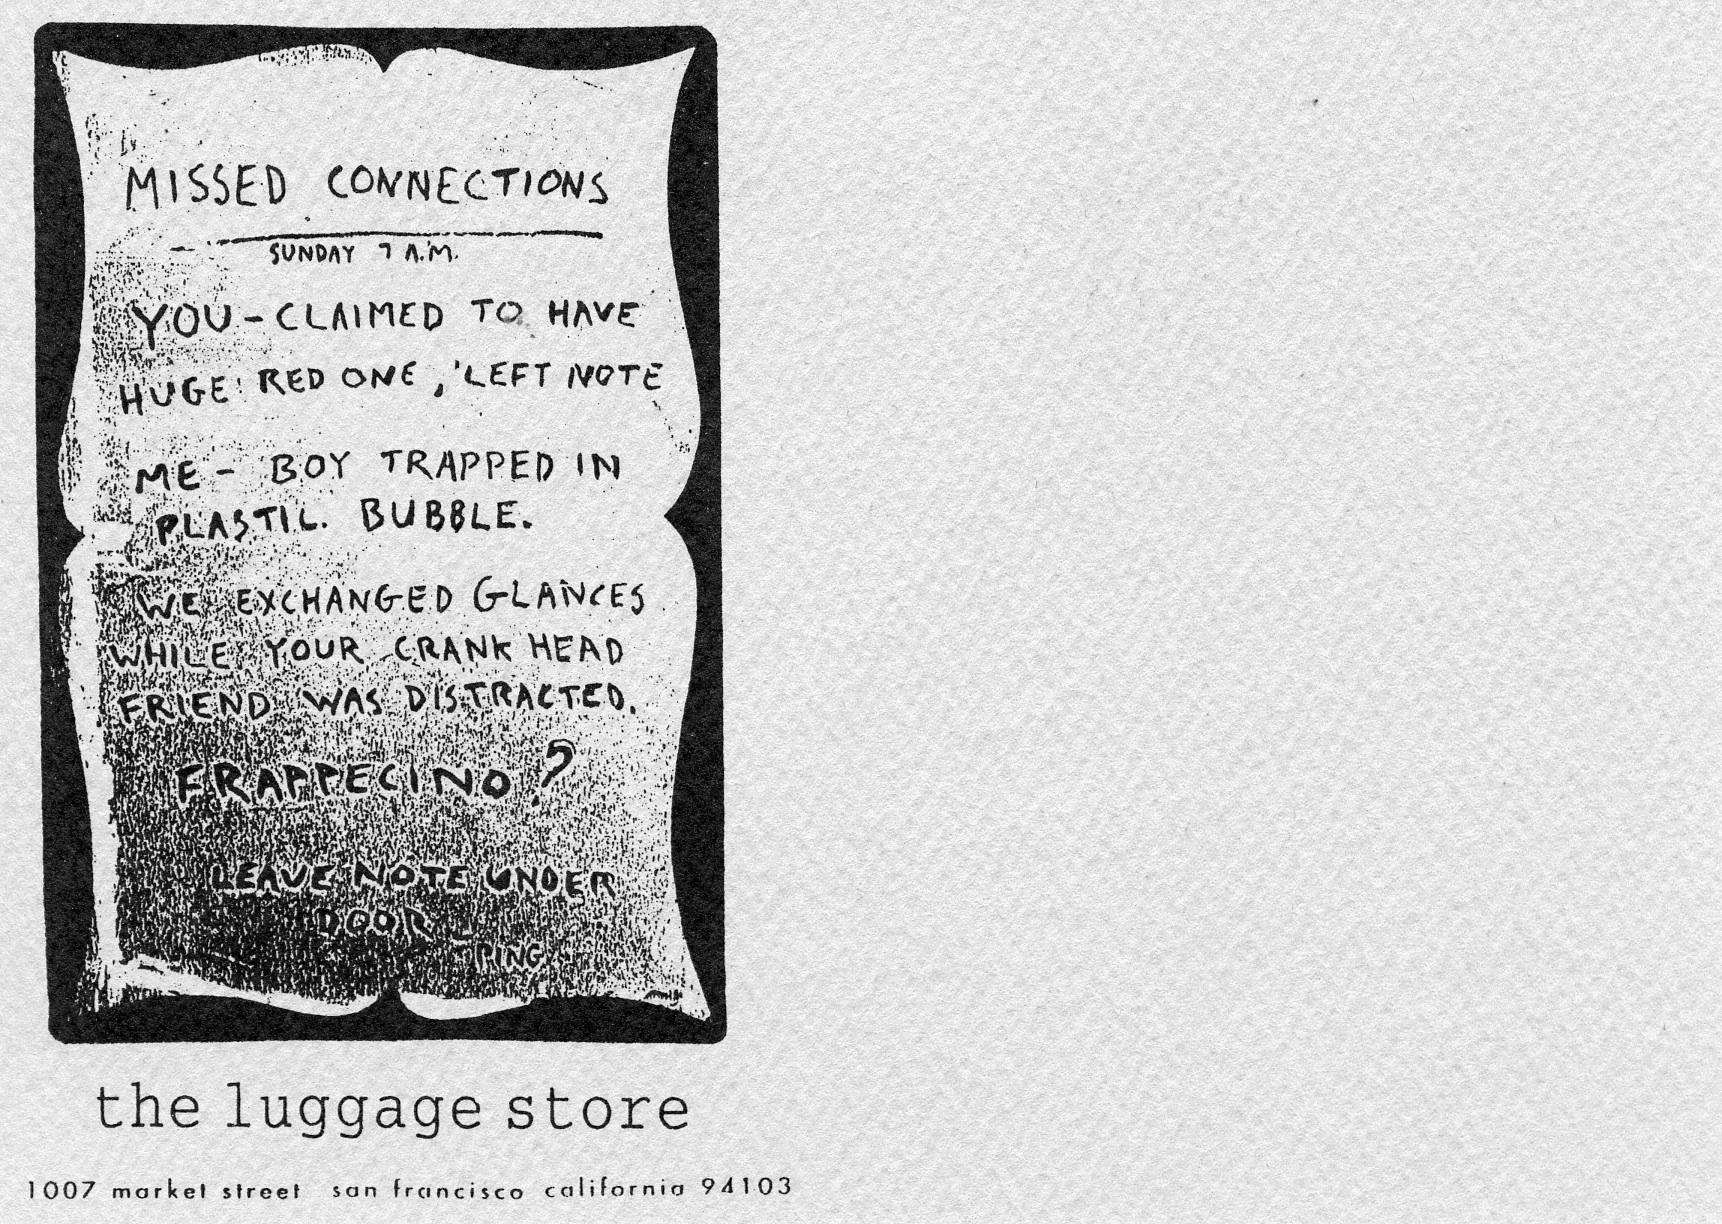 MISSED CONNECTIONS
SUNDAY 7 A.M.
YOU - CLAIMED TO HAVE
HUGE RED ONE, 'LEFT NOTE
ME - BOY TRAPPED IN
PLASTIC BUBBLE.
WE EXCHANGED GLANCES
WHILE YOUR CRANK HEAD
FRIEND WAS DISTRACTED.
FRAPPECINO?
LEAVE NOTE UNDER
DOOR -
PING
the luggage store
1007 market street san francisco california 94103